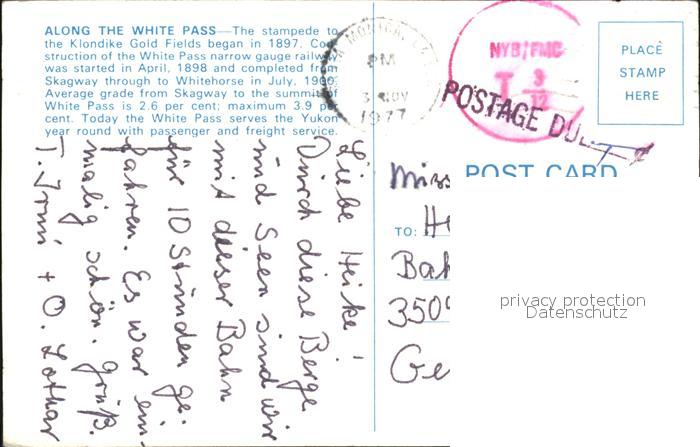 ALONG THE WHITE PASS—The stampede to
the Klondike Gold Fields began in 1897. Con-
struction of the White Pass narrow gauge railway
was started in April, 1898 and completed from
Skagway through to Whitehorse in July, 1900.
Average grade from Skagway to the summit of
White Pass is 2.6 per cent; maximum 3.9 per
cent. Today the White Pass serves the Yukon
year round with passenger and freight service.
Liebe Heike!
Durch diese Berge
und Seen sind wir
mit dieser Bahn
für 10 Stunden ge-
fahren. Es war ein-
malig schön. Grüß.
T. Irmi + O. Lothar
MONICA, CA
PM
3 NOV
1977
NYB/FMC
T 9
12
POSTAGE DUE
PLACE
STAMP
HERE
POST CARD
Miss
TO: He
Bah
350
Ge
privacy protection
Datenschutz